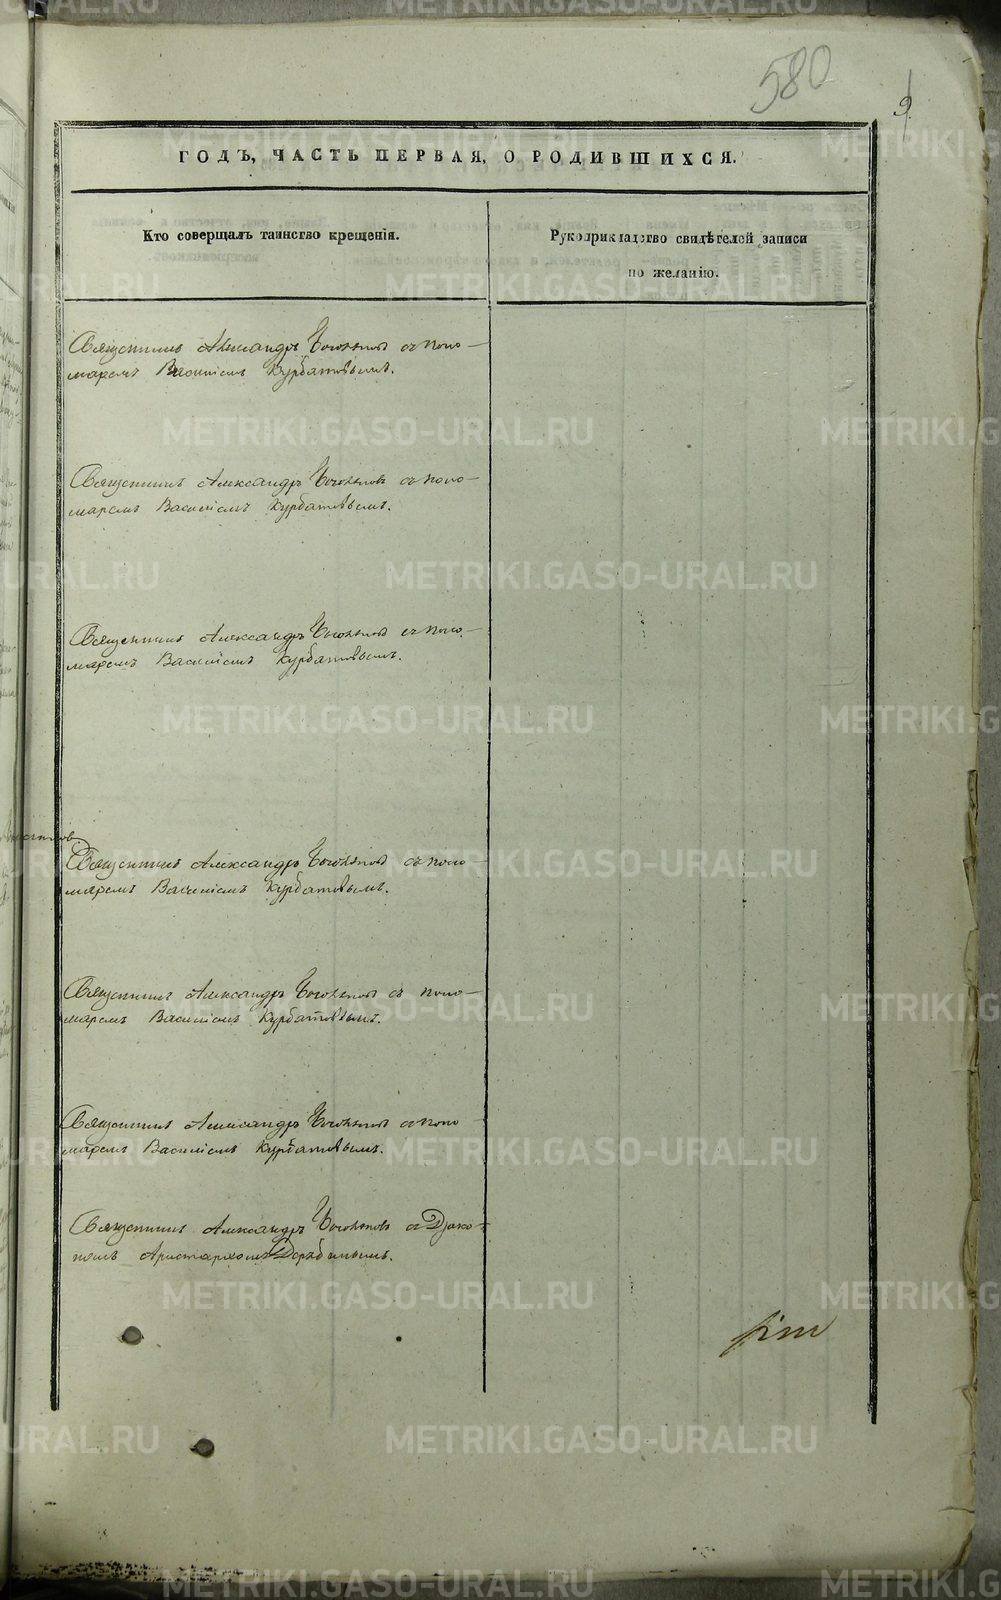 580
9
ГОДЪ, ЧАСТЬ ПЕРВАЯ, О РОДИВШИХСЯ.
Кто совершалъ таинство крещенія.
Рукоприкладство свидѣтелей записи
по желанію.
Священникъ Александръ съ поно-
маремъ Василіемъ Курбатовымъ.
Священникъ Александръ съ поно-
маремъ Василіемъ Курбатовымъ.
Священникъ Александръ съ поно-
маремъ Василіемъ Курбатовымъ.
Священникъ Александръ съ поно-
маремъ Василіемъ Курбатовымъ.
Священникъ Александръ съ поно-
маремъ Василіемъ Курбатовымъ.
Священникъ Александръ съ поно
маремъ Василіемъ Курбатовымъ.
Священникъ Александръ съ Дьяко-
номъ Аристархомъ
METRIKI.GASO-URAL.RU